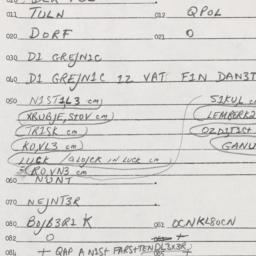 011 TULN 012 QPOL
020 DORF 021 O
030 DI GREJN1C
040 DI GREJN1C 12 VAT F1N DAN3T
050 N1ST1L3 cm S1KUL cm
XRUBJE,STOV cm LEMPERK2
TR1SK cm OZDIT1ST
ROVL3 cm GANU
LUCK / GLOJCK IN LUCK cm
ROVN3 cm
060 NUNT
070 NEJNT3R
080 BOJB3R1K 081 OCNKL8OCN
082 O 083 +
084 + QAP A N1ST FARSTTENDL3X3R 085